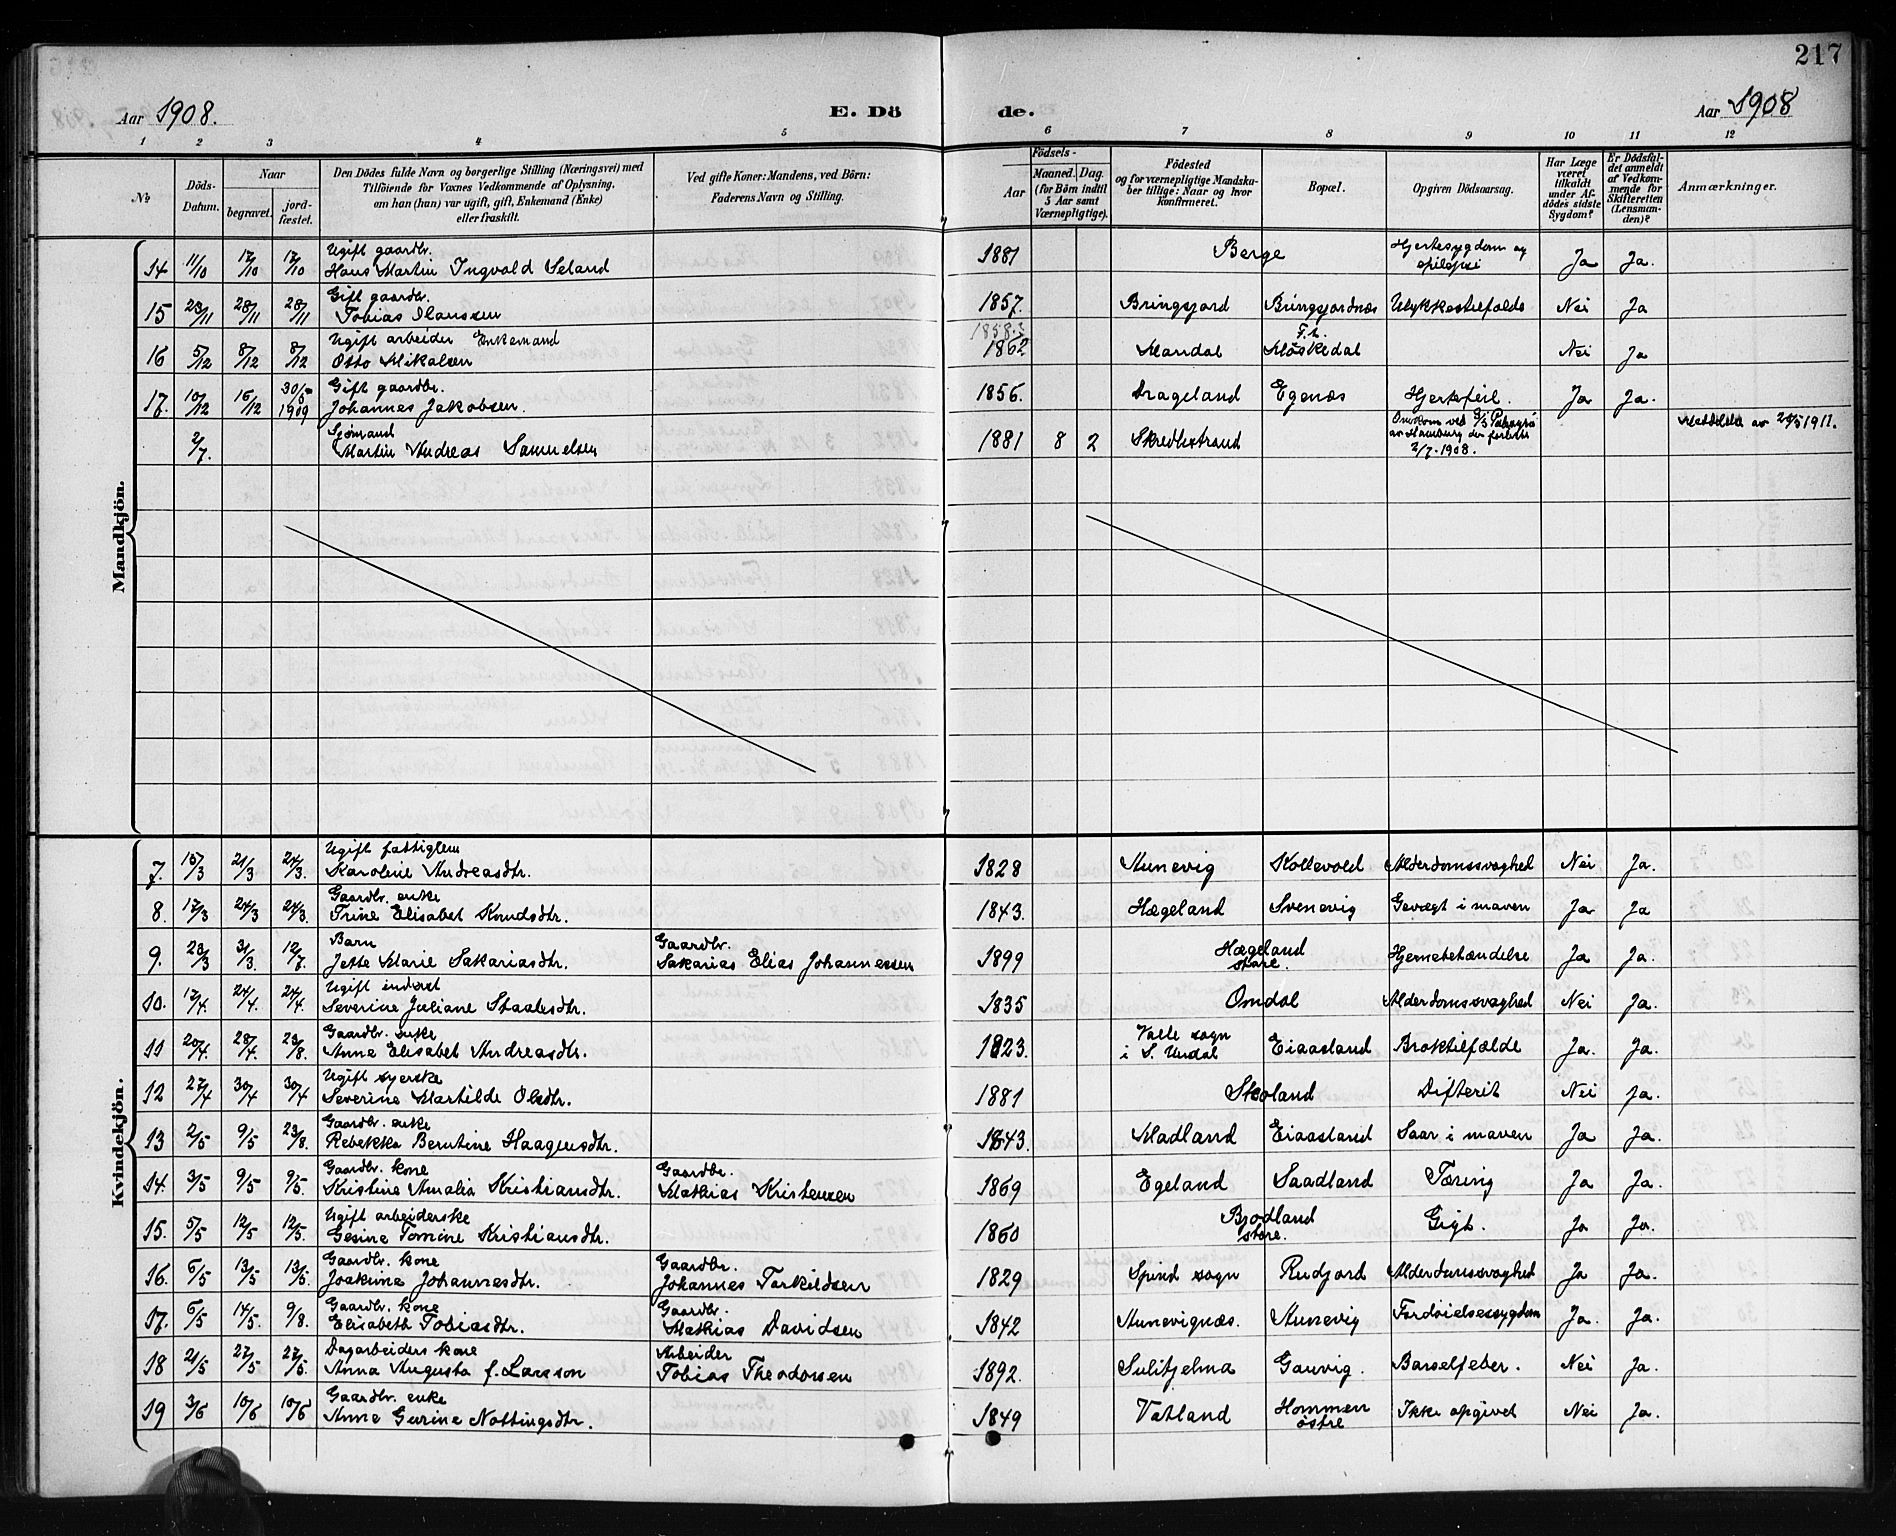 217
Aar 1908. E. Dö de. Aar 1908
1 2 3 4 5 6 7 8 9 10 11 12
No
Döds-
Datum.
Naar
begravet.
jord-
fæstet.
Den Dödes fulde Navn og borgerlige Stilling (Næringsvei) med
Tilföiende for Voxnes Vedkommende af Oplysning,
om han (hun) var ugift, gift, Enkemand (Enke)
eller fraskilt.
Ved gifte Koner: Mandens, ved Börn:
Faderens Navn og Stilling.
Födsels-
Aar
Maaned. Dag.
(for Börn indtil
5 Aar samt
Værnepligtige).
Födested
og for værnepligtige Mandska-
ber tillige: Naar og hvor
konfirmeret.
Bopæl.
Opgiven Dödsaarsag.
Har Læge
været
tilkaldt
under Af-
dödes sidste
Sygdom?
Er Dödsfal-
det anmeldt
af Vedkom-
mende for
Skifteretten
(Lensman-
den)?
Anmærkninger.
Mandkjön.
Ugift gaardbr.
14 11/10 17/10 17/10 Hans Martin Ingvald Seland 1881 Berge Hjertesygdom og
epilepsi Ja Ja.
Gift gaardbr.
15 23/11 28/11 28/11 Tobias Hanssen 1857. Bringsjord Bringsjordnæs Ulykkestilfælde Nei Ja
Ugift arbeider Enkemand 1858.3 F.h.
16 5/12 8/12 8/12 Otto Mikalsen 1862 Mandal Möskedal Nei Ja
Gift gaardbr.
17. 10/12 16/12 30/5 1909 Johannes Jakobsen. 1856. Drageland Egenæs Hjertefeil. Ja Ja.
Sjömand
2/7. Martin Andreas Samuelsen 1881 8 2 Skredbstrand Omkom ved S/S
av Hamburg den forliste
2/7-1908. Meddelelse av 24/5 1911.
Kvindekjön.
Ugift fattiglem
7. 15/3 21/3 24/3. Karoline Andreasdtr. 1828 Aunevig Kollevold Alderdomssvaghed Nei Ja.
Gaardbr. enke
8. 17/3 24/3 24/3. Trine Elisabet Knudsdtr. 1843. Hægeland Svenevig Gevægt i maven Ja Ja
Barn Gaardbr.
9. 23/3 31/3. 12/7. Jette Marie Sakariasdtr. Sakarias Elias Johannessen 1899 Hægeland
store. Hjernebetændelse Ja Ja.
Ugift inderst
10. 17/4. 24/4. 24/4. Severine Juliane Staalesdtr. 1835 Omdal Alderdomssvaghed Nei Ja.
Gaardbr. enke Valle sogn
11 20/4. 28/4. 23/8. Anne Elisabet Andreasdtr. 1823. i S. Undal Eiaasland Broktilfælde Ja. Ja.
Ugift syerske
12 27/4 30/4 30/4 Severine Martilde Olsdtr. 1881 Skoland Difterit Nei Ja.
Gaardbr. enke
13 2/5 9/5 23/8. Rebekka Berntine Haagensdtr. 1843. Madland Eiaasland Saar i maven Ja Ja.
Gaardbr. kone Gaardbr.
14. 3/5 9/5 9/5. Kristine Amalia Kristiansdtr. Mathias Kristensen 1869 Egeland Saadland Tæring Ja Ja.
Ugift arbeiderske
15. 5/5 12/5 12/5. Gesine Tomine Kristiansdtr. 1860 Bjodland
store. Gigt. Ja Ja.
Gaardbr. kone Gaardbr.
16. 6/5 13/5 13/5. Joakime Johannesdtr. Johannes Torkildsen 1829 Spind sogn Rudjord Alderdomssvaghed Ja Ja.
Gaardbr. kone Gaardbr.
17. 6/5 14/5. 9/8. Elisabeth Tobiasdtr. Mathias Davidsen 1842 Aunevignæs. Aunevig Fordöielsessygdom Ja. Ja.
Dagarbeiders kone Arbeider
18 21/5 27/5 27/5. Anna Augusta f. Larsson Tobias Theodorsen 1892. Sulitjelma Gauvig. Barselfeber. Nei Ja.
Gaardbr. enke
19 3/6 10/6 10/6 Anne Gurine Nottingsdtr. 1849 Vatland Hommen
östre Ikke opgivet Nei Ja.